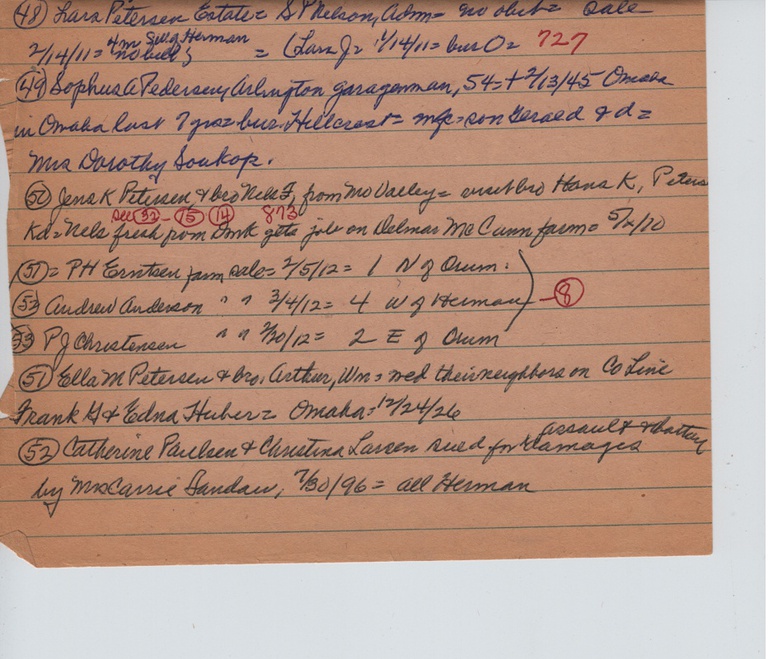 (48) Lars Petersen Estate = S P Nelson, Adm = no obit = sale
2/14/11 = 4 m SW of Herman no bill; = (Lars J = 1/14/11 = bur O = 727
(49) Sophus A Pedersen, Arlington garageman, 54 = + 2/13/45 Omaha
in Omaha last 7 yrs = bur. Hillcrest = mfc = son Gerald & d =
Mrs Dorothy Soukop.
(50) Jens K Petersen, & bro Nels F, from Mo Valley = visit bro Hans K, Peters
see (32) - (15) (14) 873
Kd = Nels fresh from Dmk gets job on Delmar McCann farm = 5/2/10
(51) = P H Erntsen farm sale = 2/5/12 = 1 N of Orum.
(52) Andrew Anderson " " 3/4/12 = 4 W of Herman - (8)
(53) P J Christensen " " 2/20/12 = 2 E of Orum
(51) Ella M Petersen & bro. Arthur, Wm = wed their neighbors on Co Line
Frank G & Edna Huber = Omaha = 12/24/26
(52) Catherine Paulsen & Christina Larsen sued for damages assault & battery
by Mrs Carrie Sandau, 7/30/96 = all Herman